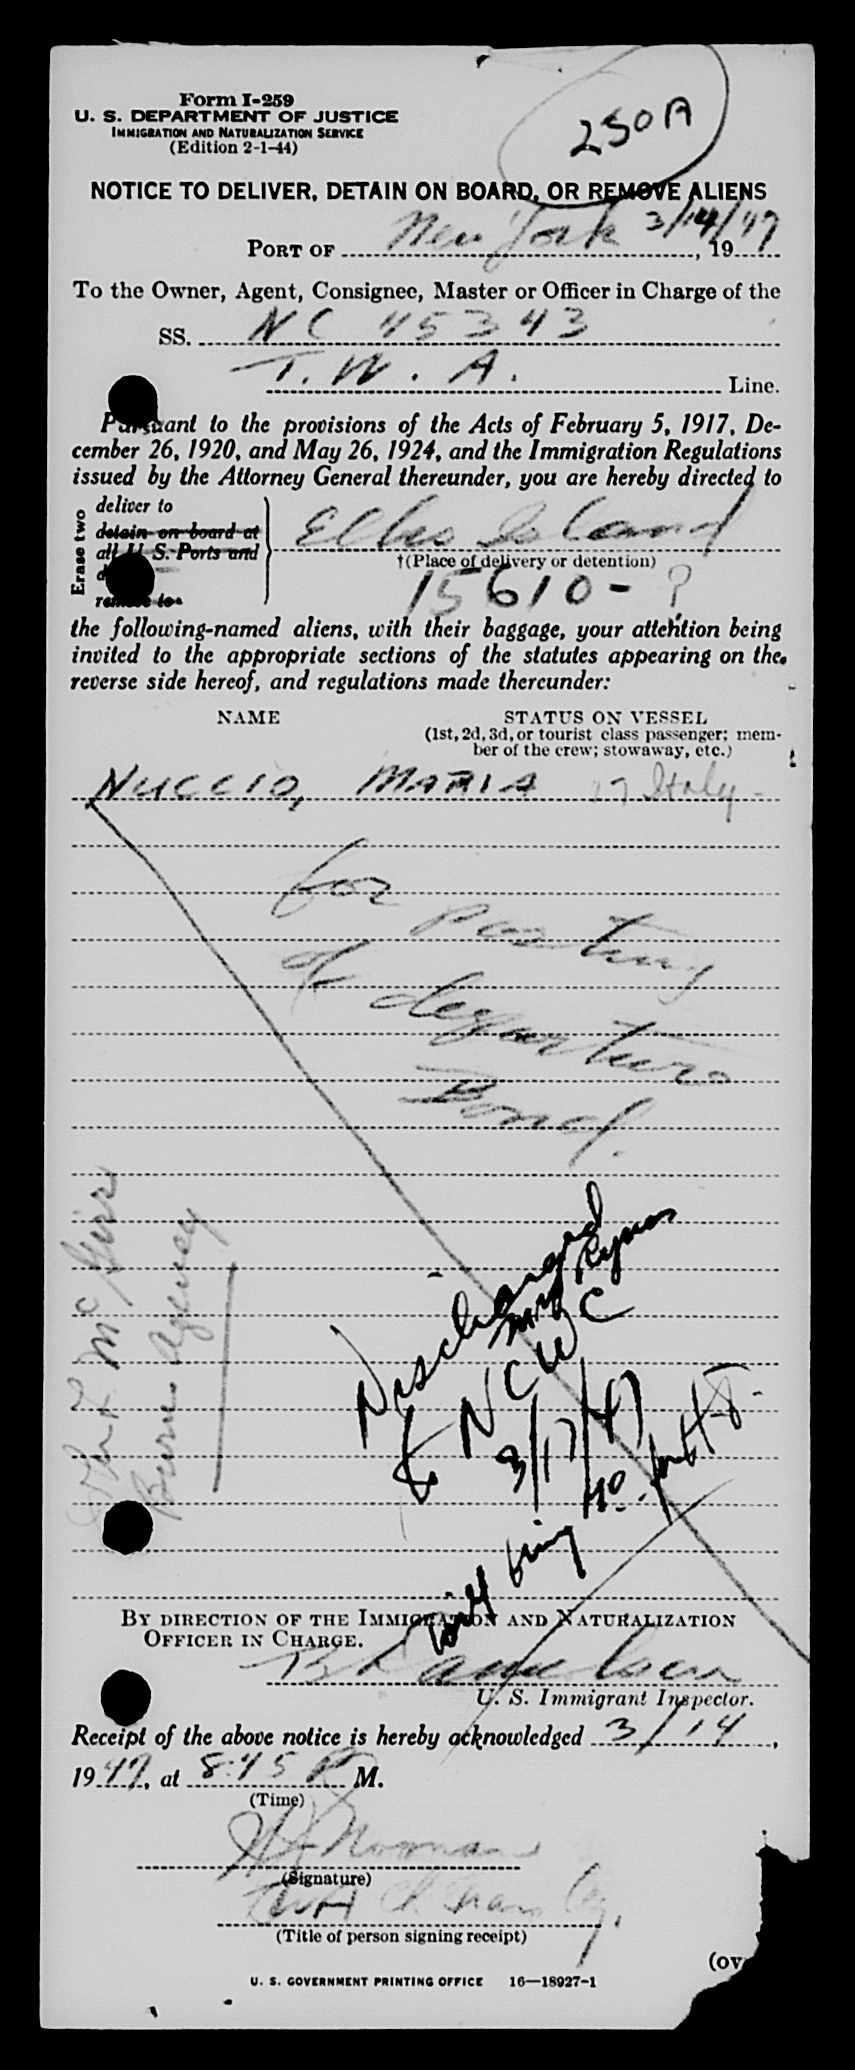 Form I-259
U. S. DEPARTMENT OF JUSTICE
IMMIGRATION AND NATURALIZATION SERVICE
(Edition 2-1-44)
250A
NOTICE TO DELIVER, DETAIN ON BOARD, OR REMOVE ALIENS
PORT OF New York 3/14/, 1947
To the Owner, Agent, Consignee, Master or Officer in Charge of the
SS. NC 45343
T. W. A. Line.
Pursuant to the provisions of the Acts of February 5, 1917, De-
cember 26, 1920, and May 26, 1924, and the Immigration Regulations
issued by the Attorney General thereunder, you are hereby directed to
Erase two
deliver to
detain on board at
all U. S. Ports and
remove to
Ellis Island
†(Place of delivery or detention)
15610-?
the following-named aliens, with their baggage, your attention being
invited to the appropriate sections of the statutes appearing on the
reverse side hereof, and regulations made thereunder:
NAME STATUS ON VESSEL
(1st, 2d, 3d, or tourist class passenger; mem-
ber of the crew; stowaway, etc.)
NUCCIO, MARIA 17 Italy -
for posting
of departure
Bond.
Burns Agency
Discharged
& NCWC
3/17/47
will bring
BY DIRECTION OF THE IMMIGRATION AND NATURALIZATION
OFFICER IN CHARGE.
U. S. Immigrant Inspector.
Receipt of the above notice is hereby acknowledged 3/14,
1947, at 8:45 P M.
(Time)
(Signature)
TWA
(Title of person signing receipt)
(ov
U. S. GOVERNMENT PRINTING OFFICE 16—18927-1